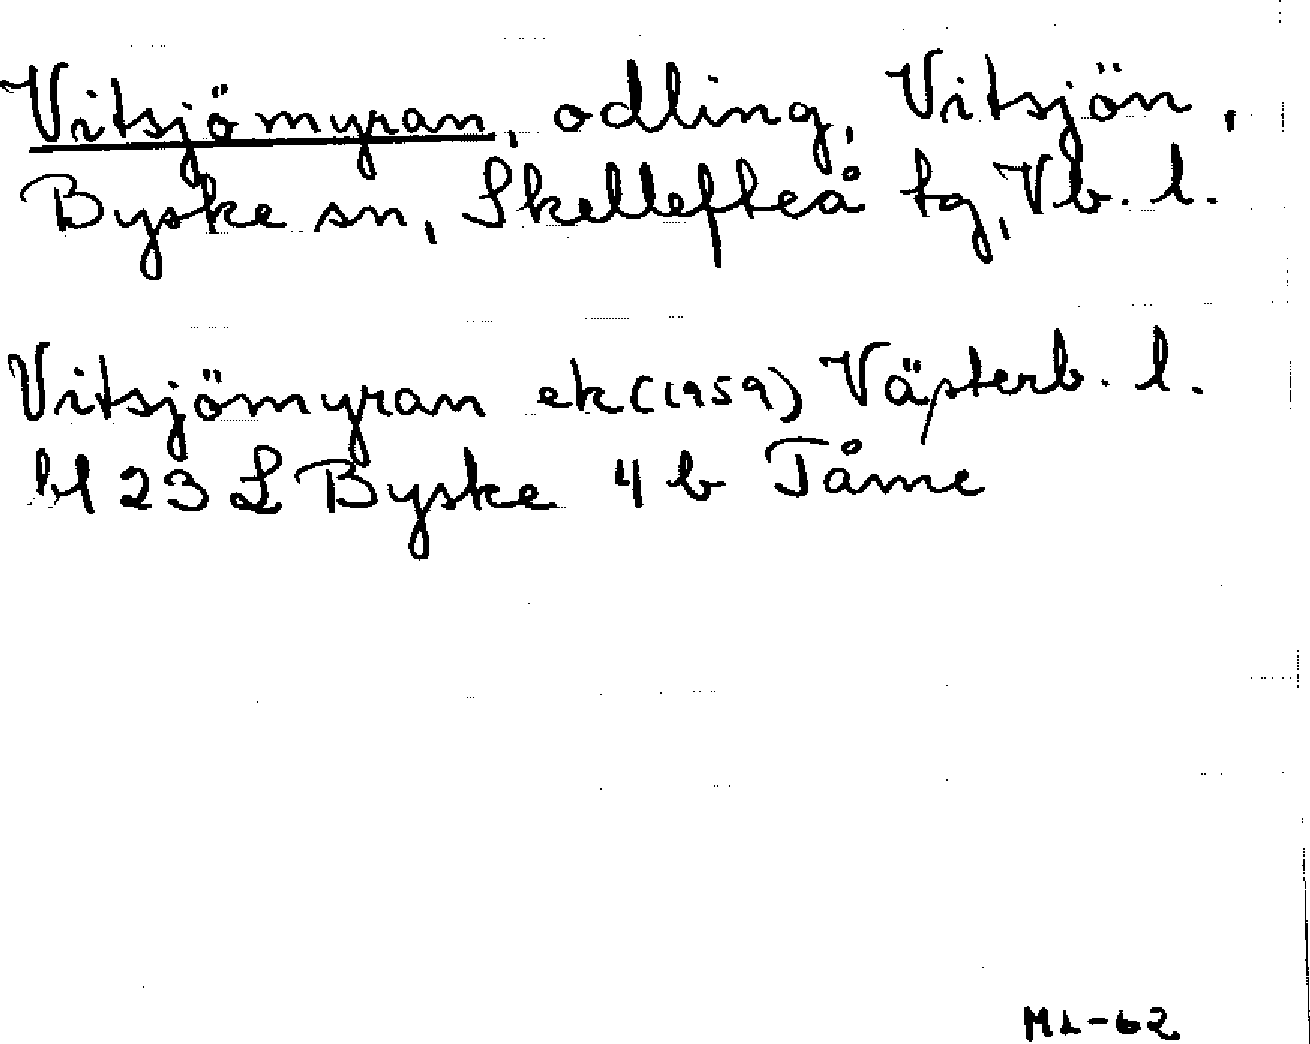 Vitsjömyran, odling, Vitsjön,
Byske sn, Skellefteå tg, Vb. l.
Vitsjömyran ek (1959) Västerb. l.
bl 23 L Byske 4 b Tåme
ML-62